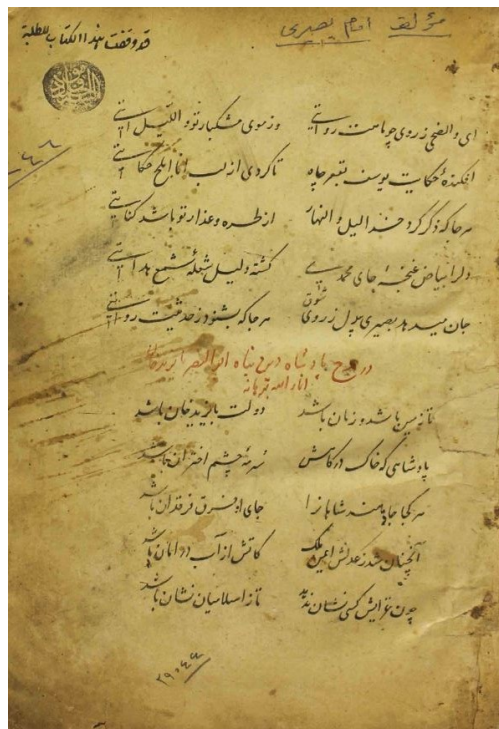 مؤلف امام بصیری
قد وقفت هذا الکتاب للطلبة
ای والضحی ز روی چو ماهت روایتی وز موی مشکبار تو واللیل آیتی
افکنده حکایت یوسف بقعر چاه تا کردی از لب انا املح حکایتی
هر جا که ذکر کرد خدا لیل و النهار از طره و عذار تو باشد کنایتی
دلرا بیاض غنچه جای محمدی گشته دلیل شعله شمع هدایتی
جان میدهد بصیری بیدل ز روی شوق هر جا که بشنود ز حدیثت روایتی
در مدح پادشاه دین پناه ابو النصر بایزید خان
انار الله برهانه
تا زمین باشد و زمان باشد دولت بایزید خان باشد
پادشاهی که خاک درگاهش سرمه چشم اختران باشد
هر کجا جا دهند شاهانرا جای او فرق فرقدان باشد
آنچنان شد ز عدلش ملک کاتش از آب در امان باشد
چون غزایش کسی نشان ندهد تا ز اسلامیان نشان باشد